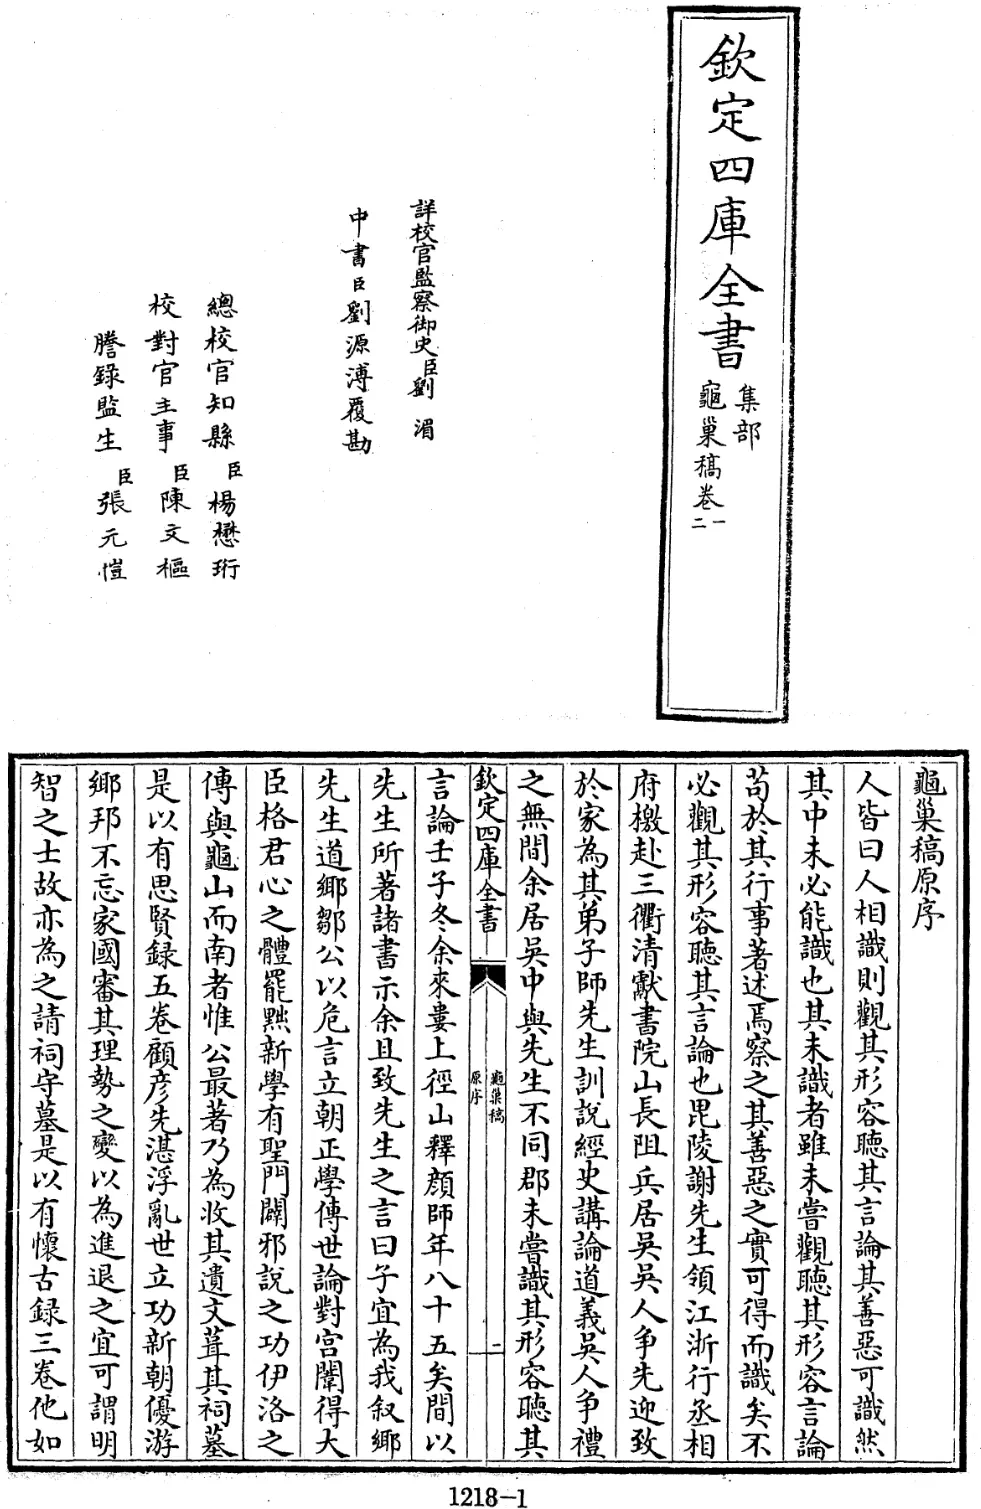 欽定四庫全書
集部
龜巢稿卷一
二
詳校官監察御史臣劉湄
中書臣劉源溥覆勘
總校官知縣臣楊懋珩
校對官主事臣陳文樞
謄錄監生臣張元愷
龜巢稿原序
人皆曰人相識則觀其形容聽其言論其善惡可識然
其中未必能識也其未識者雖未嘗觀聽其形容言論
苟於其行事著述焉察之其善惡之實可得而識矣不
必觀其形容聽其言論也毘陵謝先生領江浙行丞相
府檄赴三衢清獻書院山長阻兵居吳吳人爭先迎致
於家為其弟子師先生訓說經史講論道義吳人爭禮
之無間余居吳中與先生不同郡未嘗識其形容聽其
欽定四庫全書
龜巢稿
原序
二
言論壬子冬余來婁上徑山釋顏師年八十五矣間以
先生所著諸書示余且致先生之言曰子宜為我叙鄉
先生道鄉鄒公以危言立朝正學傳世論對宮闈得大
臣格君心之體罷黜新學有聖門闢邪說之功伊洛之
傳與龜山而南者惟公最著乃為收其遺文葺其祠墓
是以有思賢録五卷顧彥先湛浮亂世立功新朝優游
鄉邦不忘家國審其理勢之變以為進退之宜可謂明
智之士故亦為之請祠守墓是以有懷古録三卷他如
1218-1